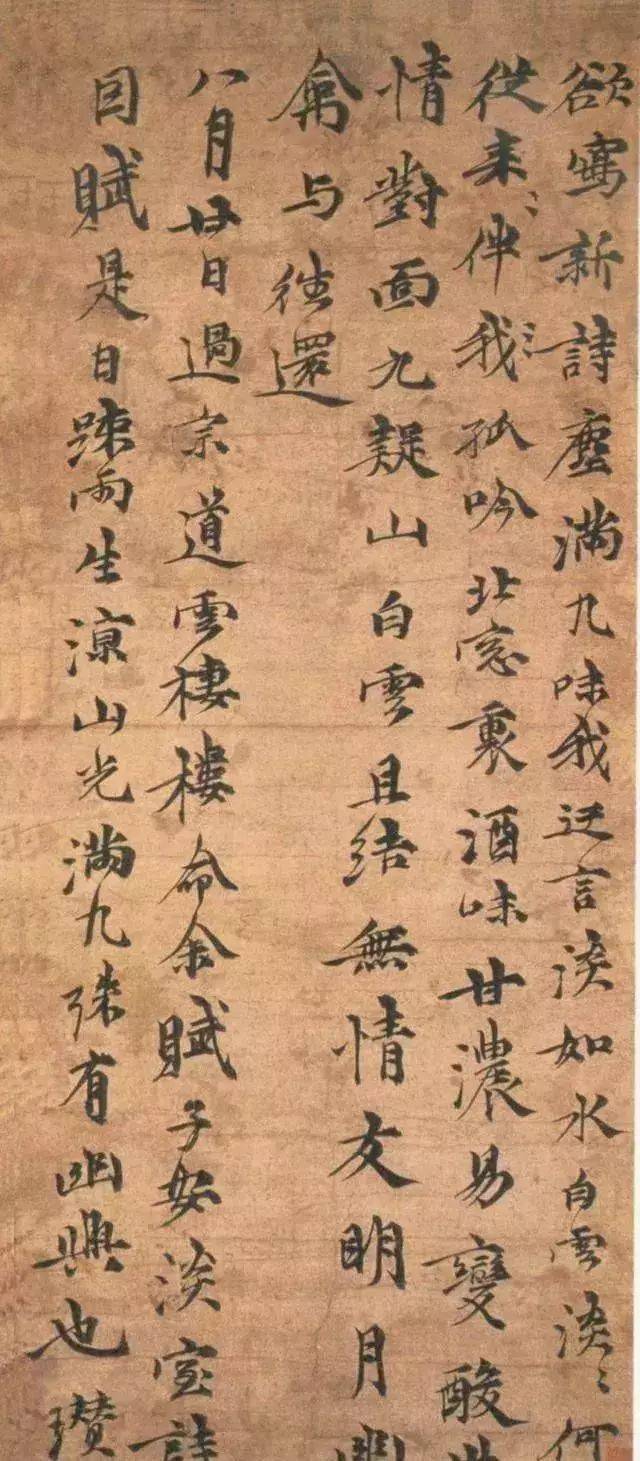 欲寫新詩塵滿几味我迂言淡如水白雲淡〻何
從来〻伴我孤吟北窓裏酒味甘濃易變酸世
情對面九疑山白雲且結無情友明月幽
禽与往還
八月廿日過宗道雲棲樓命余賦子安淡室詩
因賦是日踈雨生涼山光滿几殊有幽興也瓚